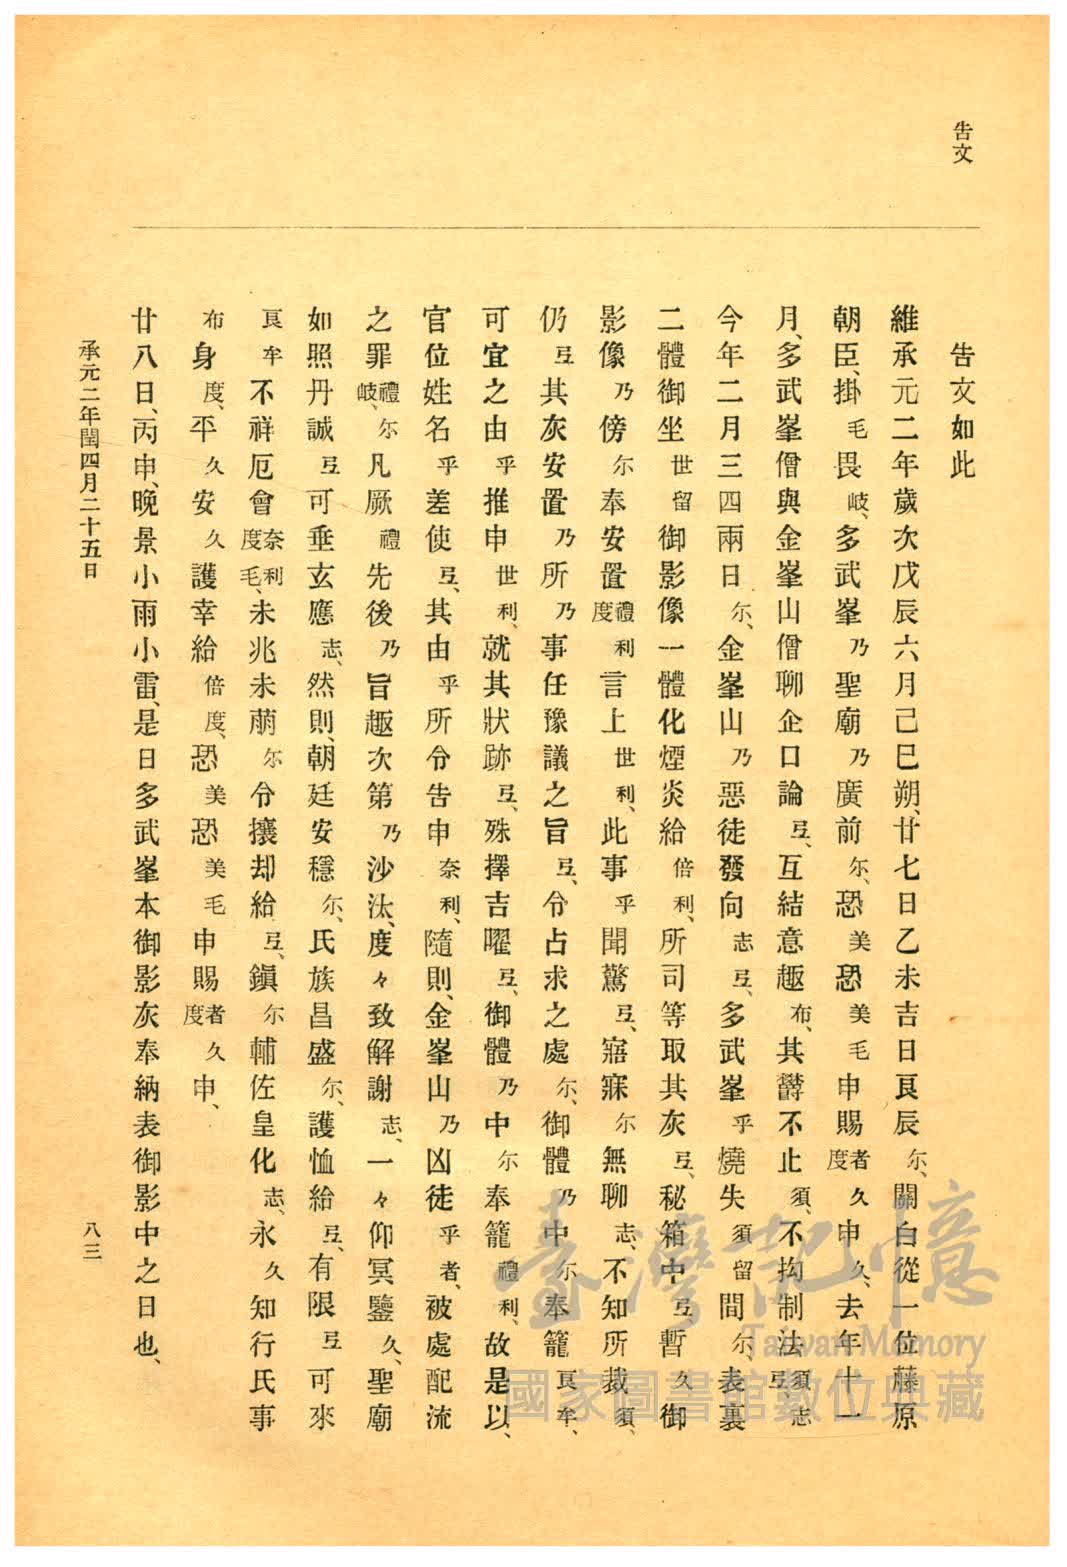 告文
告文如此
維承元二年歲次戊辰六月己巳朔、廿七日乙未吉日良辰尓、關白從一位藤原
朝臣、掛毛畏岐、多武峯乃聖廟乃廣前尓、恐美恐美毛申賜者度久申久、去年十一
月、多武峯僧與金峯山僧聊企口論弖、互結意趣布、其欝不止須、不拘制法須志弖、
今年二月三四兩日尓、金峯山乃惡徒發向志弖、多武峯乎燒失須留間尓、表裏
二體御坐世留御影像一體化煙炎給倍利、所司等取其灰弖、秘箱中弖暫久御
影像乃傍尓奉安置禮度利言上世利、此事乎聞驚弖、寤寐尓無聊志、不知所裁須、
仍弖其灰安置乃所乃事任豫議之旨弖、令占求之處尓、御體乃中尓奉籠良牟、
可宜之由乎推申世利、就其狀跡弖、殊擇吉曜弖、御體乃中尓奉籠禮利、故是以、
官位姓名乎差使弖、其由乎所令告申奈利、隨則、金峯山乃凶徒乎者、被處配流
之罪禮岐、尓凡厥禮先後乃旨趣次第乃沙汰、度々致解謝志、一々仰冥鑒久、聖廟
如照丹誠弖可垂玄應志、然則、朝廷安穩尓、氏族昌盛尓、護恤給弖、有限弖可來
良牟不祥厄會奈利度毛、未兆未萠尓令攘却給弖、鎭尓輔佐皇化志、永久知行氏事
布身度、平久安久護幸給倍度、恐美恐美毛申賜者度久申、
廿八日、丙申、晚景小雨小雷、是日多武峯本御影灰奉納表御影中之日也、
承元二年閏四月二十五日
八三
臺灣記憶
Taiwan Memory
國家圖書館數位典藏